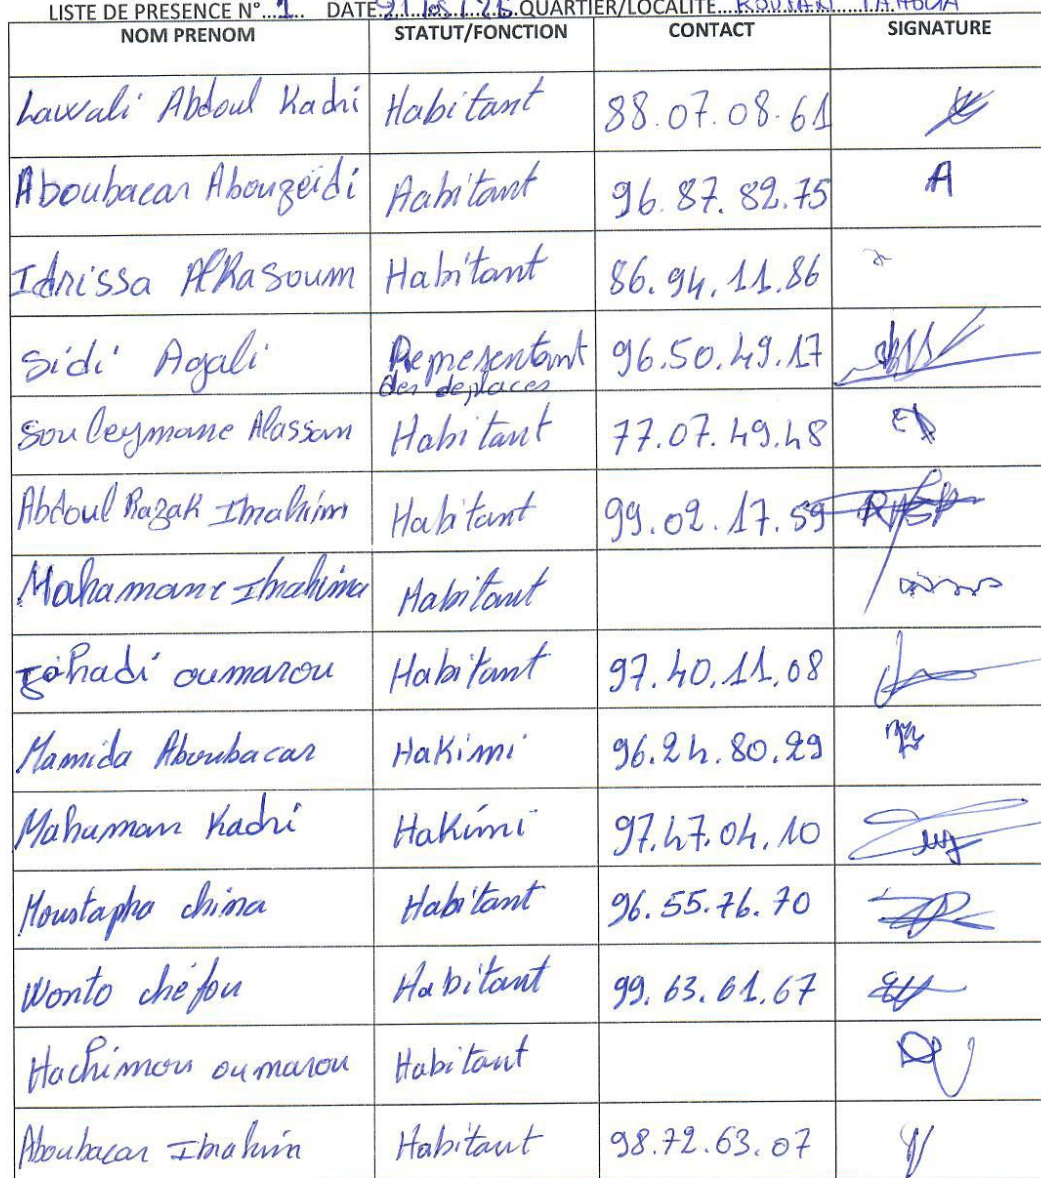 LISTE DE PRESENCE N° 1 DATE QUARTIER/LOCALITE
NOM PRENOM STATUT/FONCTION CONTACT SIGNATURE
Lawali Abdoul Kadri Habitant 88.07.08.61
Aboubacar Abouzeidi Habitant 96.87.82.75 A
Idrissa AlKasoum Habitant 86.94.11.86
Sidi Agali Representant 96.50.49.17
des deplaces
Souleymane Alassan Habitant 77.07.49.48
Abdoul Razak Ibrahim Habitant 99.02.17.59
Mahamane Ibrahima Habitant
oumarou Habitant 97.40.11.08
Hamida Aboubacar HaKimi 96.24.80.29
Mahaman Kadri HaKimi 97.47.04.10
Moustapha china Habitant 96.55.76.70
Wonto chéfou Habitant 99.63.61.67
Hachimou oumarou Habitant
Aboubacar Ibrahim Habitant 98.72.63.07